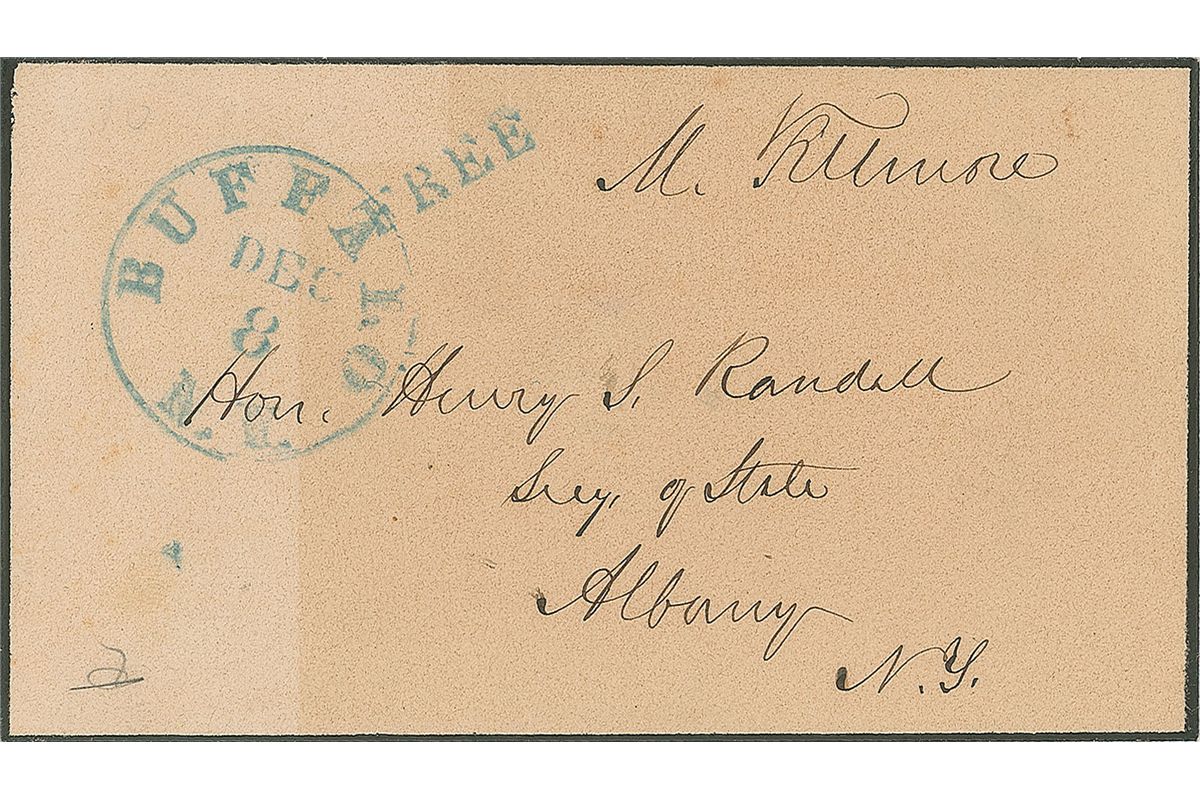 M. Fillmore
FREE
BUFFALO
DEC
8
N.Y.
Hon. Henry S. Randall
Secy. of State
Albany
N.Y.